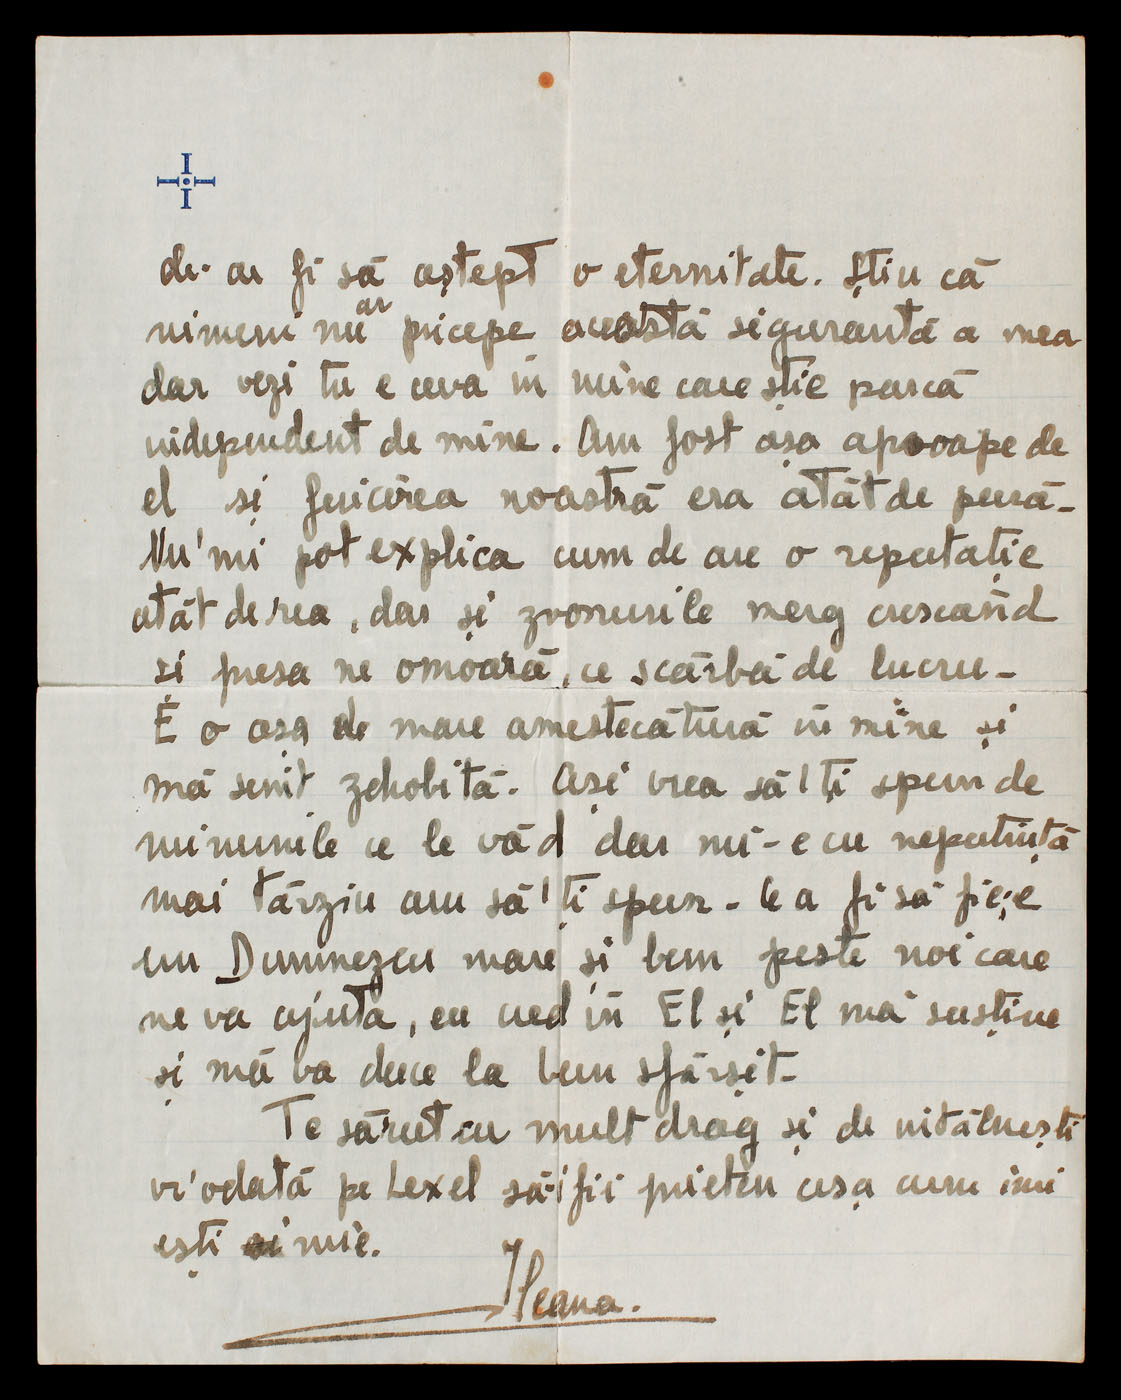 de-ar fi să aștept o eternitate. Știu că
nimeni nu ar pricepe această siguranță a mea
dar vezi tu e ceva in mine care știe parcă
independent de mine. Am fost așa aproape de
el și fericirea noastră era atât de pură-
Nu'mi pot explica cum de are o reputație
atât de rea, dar și zvonurile merg crescând
și presa ne omoară, ce scârbă de lucru-
E o așa de mare amestecătură in mine și
mă simt zdrobită. Ași vrea să'ți spun de
minunile ce le văd dar mi-e cu neputință
mai târziu am să'ți spun- Ce a fi să fie; e
un Dumnezeu mare și bun peste noi care
ne va ajuta, eu cred în El și El mă susține
și mă va duce la bun sfârșit-
Te sărut cu mult drag și de intâlnești
vr'odată pe Lexel să-i fii prieten așa cum imi
ești mie.
Ileana.